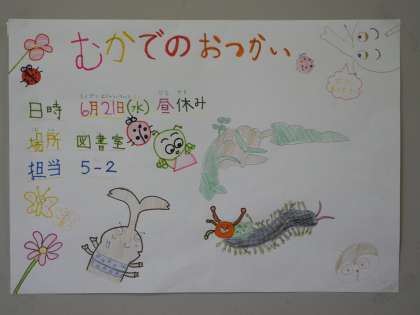 むかでのおつかい
日時 6月21日(水) 昼休み
場所 図書室
担当 5-2